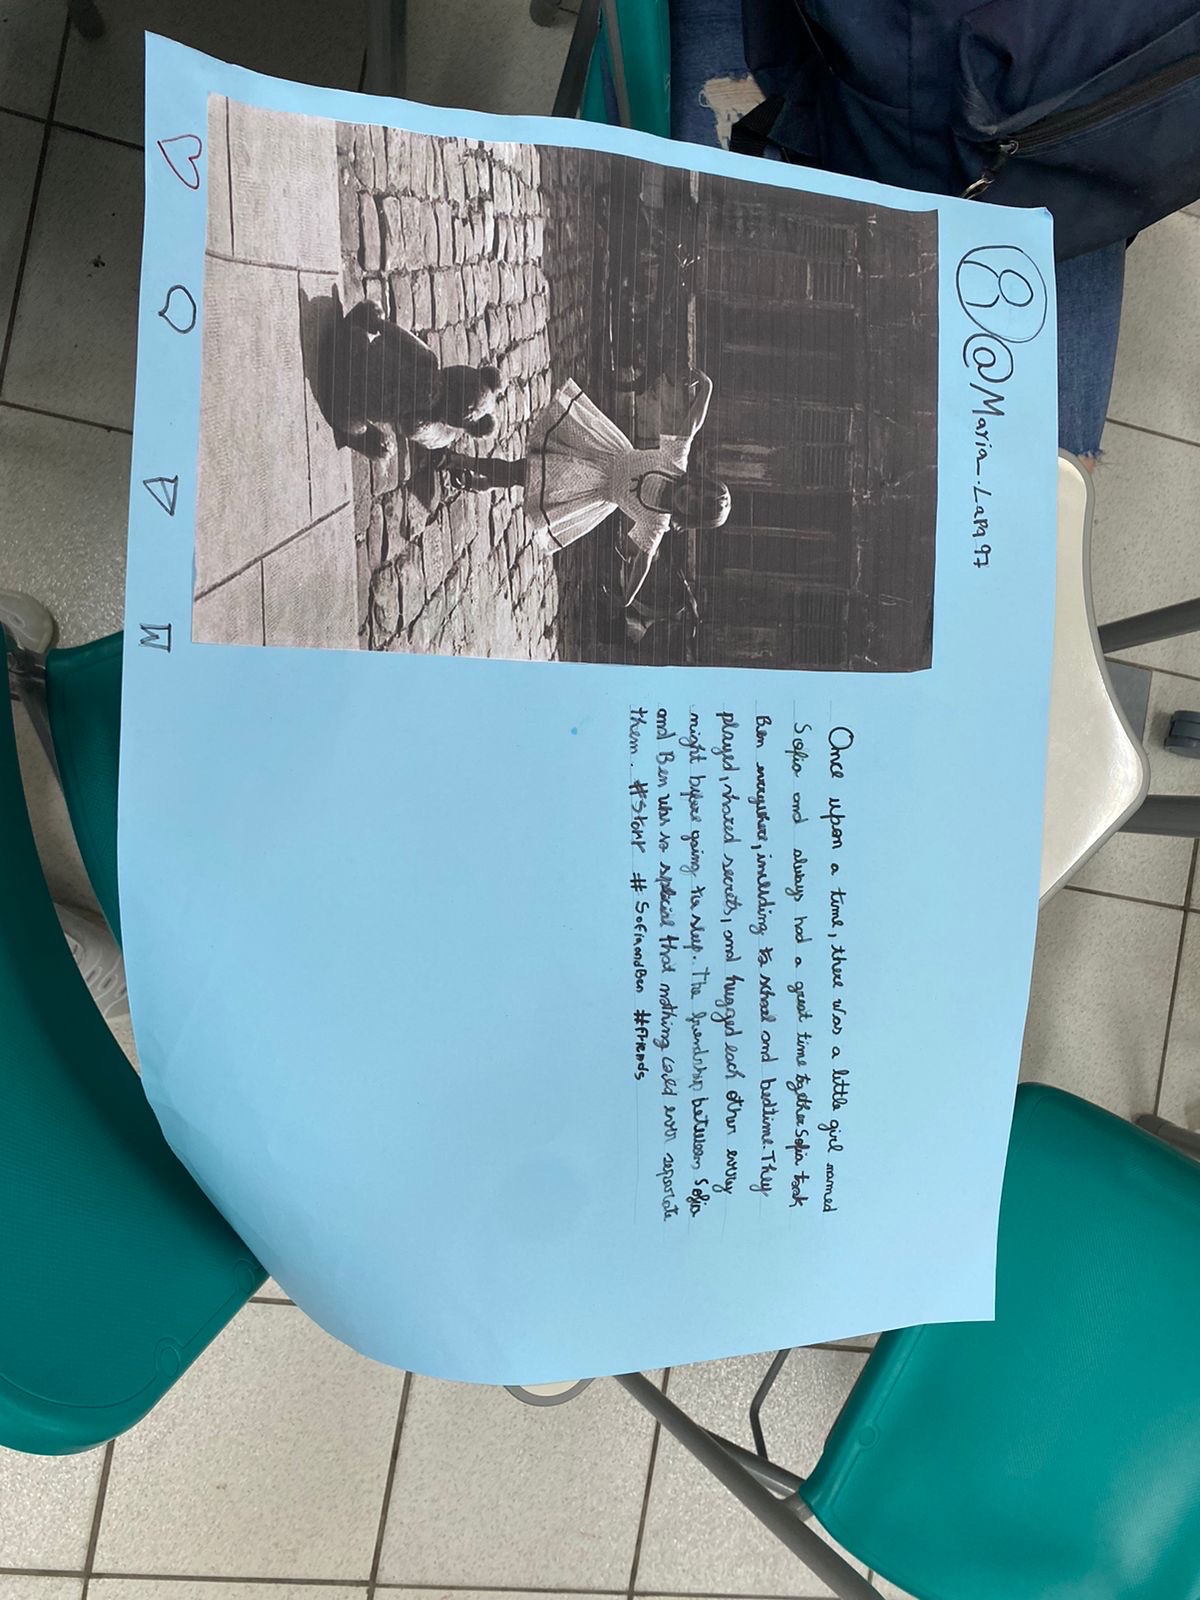 @Maria_.Lapa97
Once upon a time, there was a little girl named
Sofia and always had a great time together Sofia took
Ben everywhere, including to school and bedtime. They
played, shared secrets, and hugged each other every
night before going to sleep. The friendship between Sofia
and Ben was so special that nothing could ever separate
them. #Story #SofiaandBen #friends